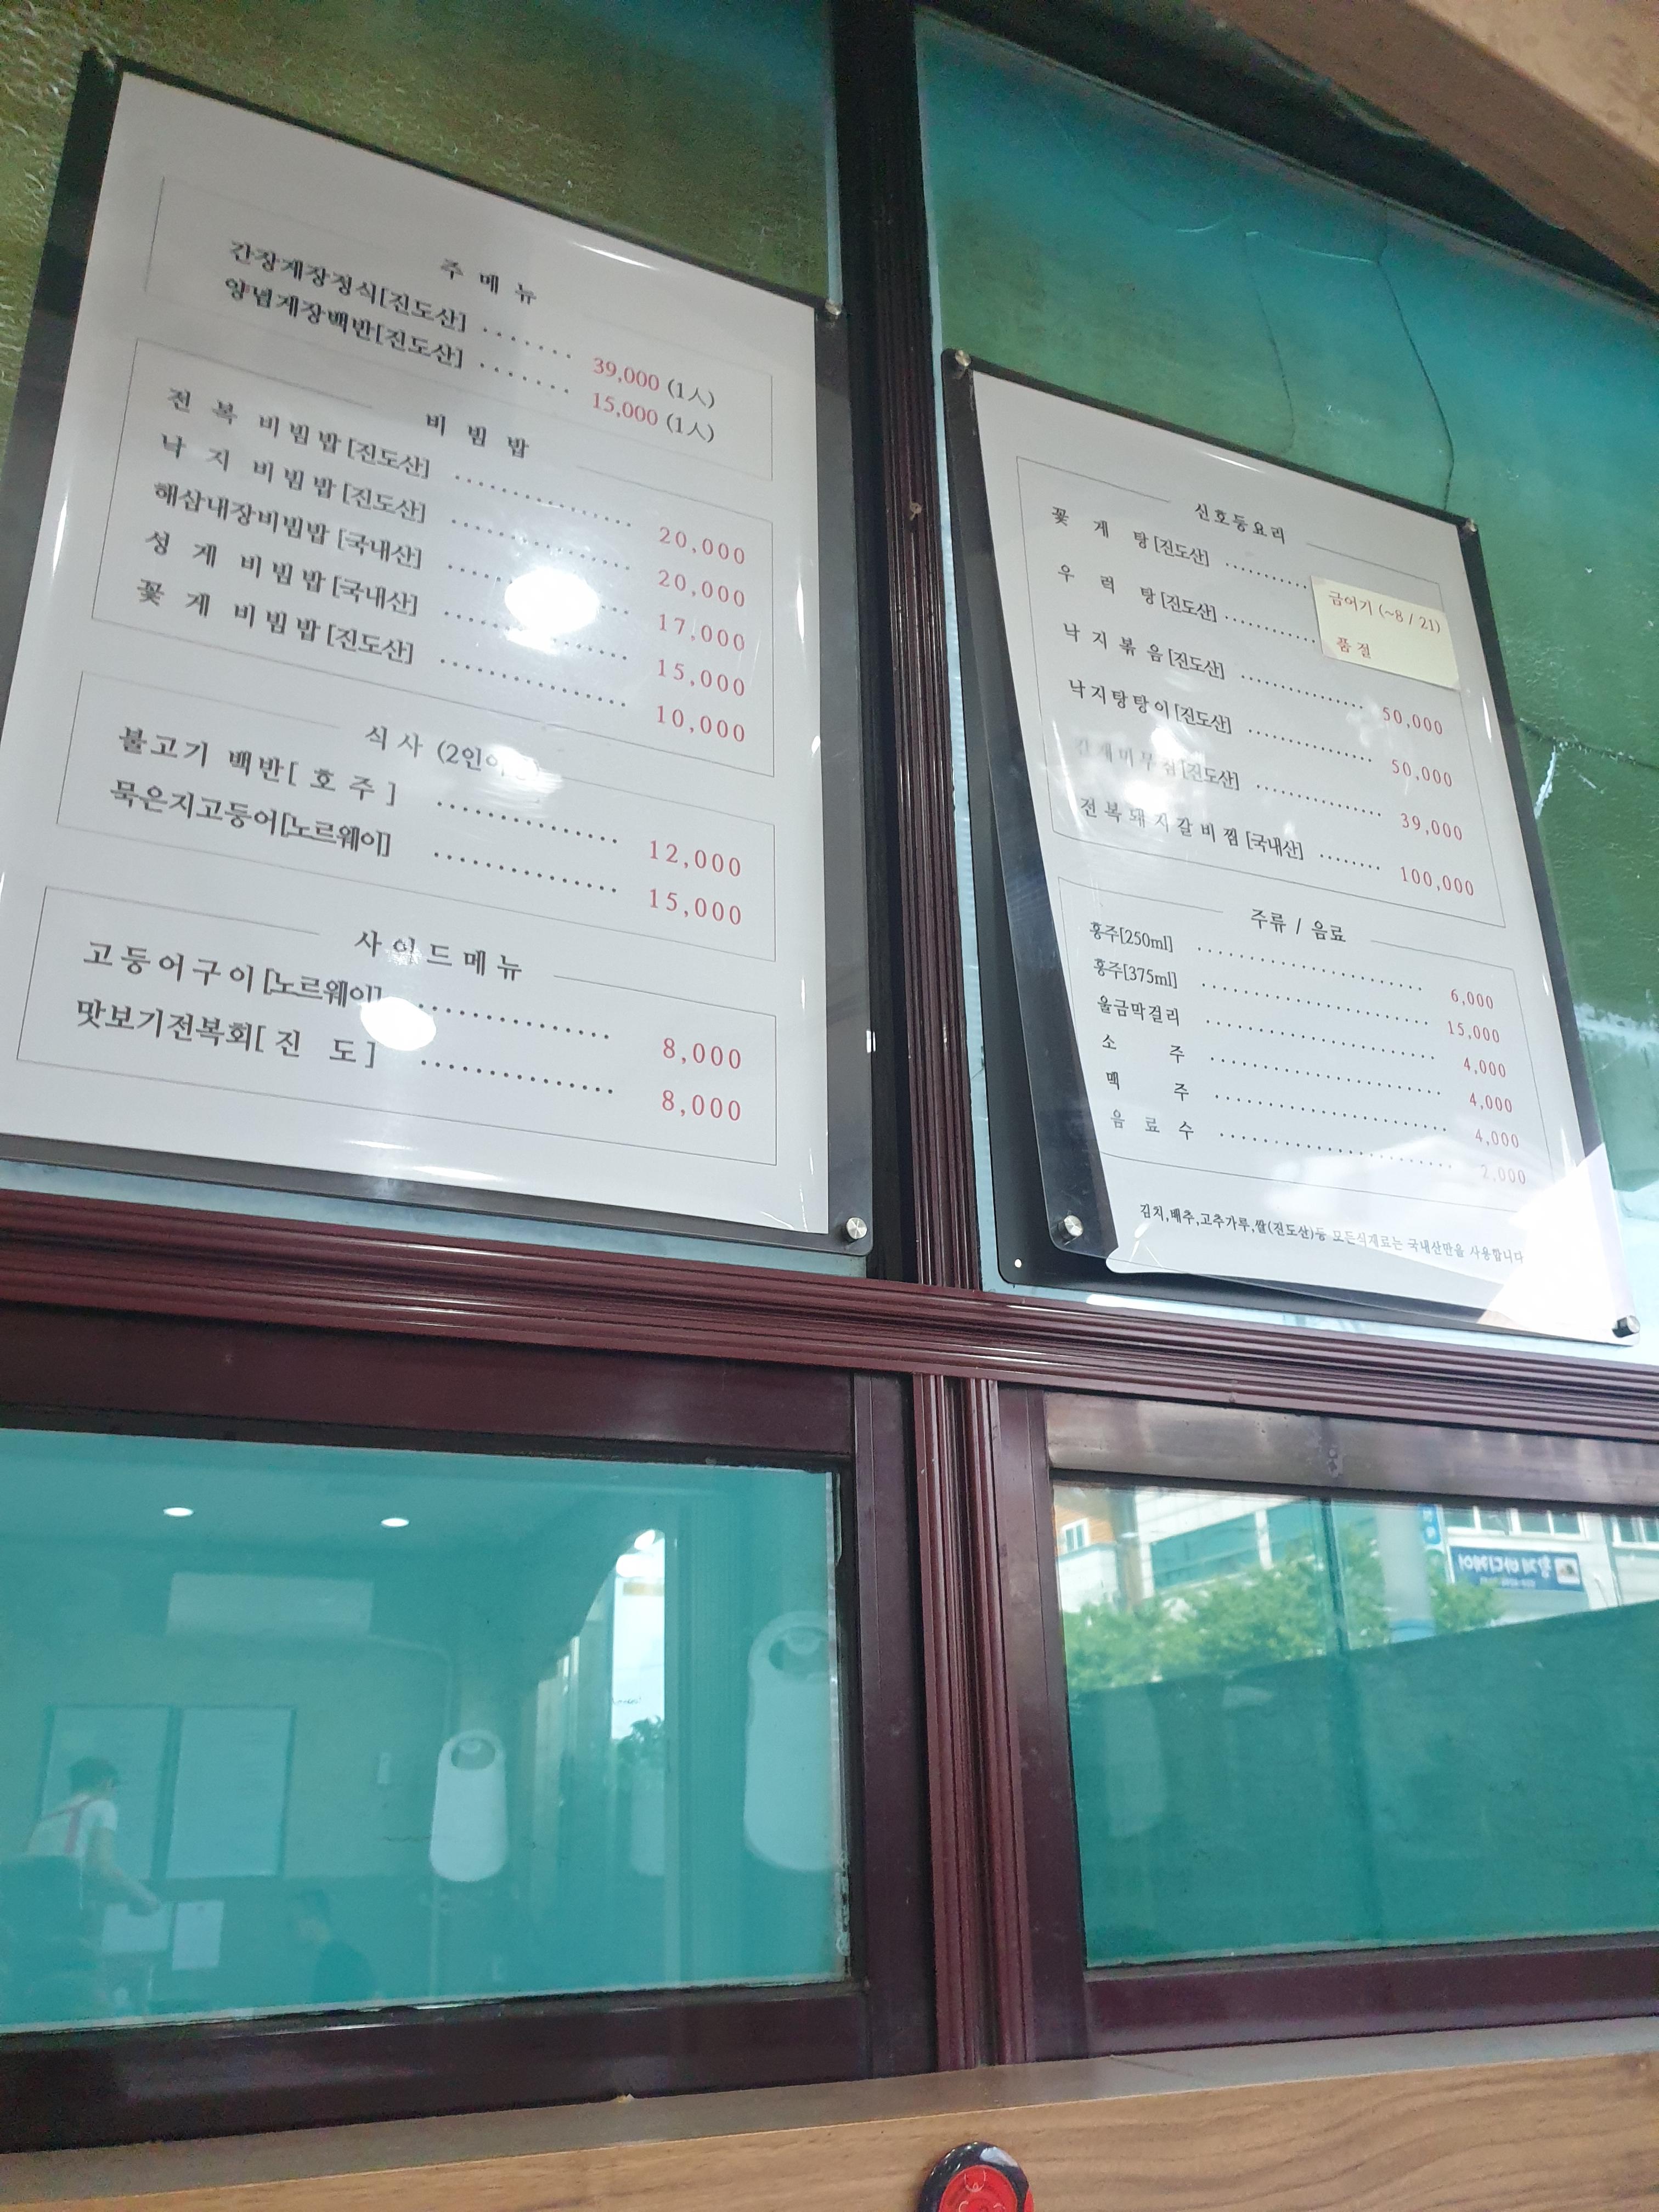 주 메 뉴
간장게장정식[진도산] ........ 39,000 (1人)
양념게장백반[진도산] ........ 15,000 (1人)
비 빔 밥
전 복 비빔밥[진도산] ................ 20,000
낙 지 비빔밥[진도산] ................ 20,000
해삼내장비빔밥 [국내산] ................ 17,000
성 게 비빔밥[국내산] ................ 15,000
꽃 게 비빔밥[진도산] ................ 10,000
식 사 (2인이상)
불고기 백반[ 호 주 ] ................ 12,000
묵은지고등어[노르웨이] ................ 15,000
사 이 드 메 뉴
고등어구이[노르웨이] ................ 8,000
맛보기전복회[ 진 도 ] ................ 8,000
신호등요리
꽃 게 탕[진도산] ............
금어기 (~8 / 21)
우 럭 탕[진도산] ............
품 절
낙 지 볶 음[진도산] ................ 50,000
낙지탕탕이[진도산] ................ 50,000
간재미무침[진도산] ................ 39,000
전복돼지갈비찜 [국내산] ......... 100,000
주류 / 음료
홍주[250ml] ........................ 6,000
홍주[375ml] ........................ 15,000
울금막걸리 ........................ 4,000
소 주 ........................ 4,000
맥 주 ........................ 4,000
음 료 수 ........................ 2,000
김치,배추,고추가루,쌀(진도산)등 모든식재료는 국내산만을 사용합니다